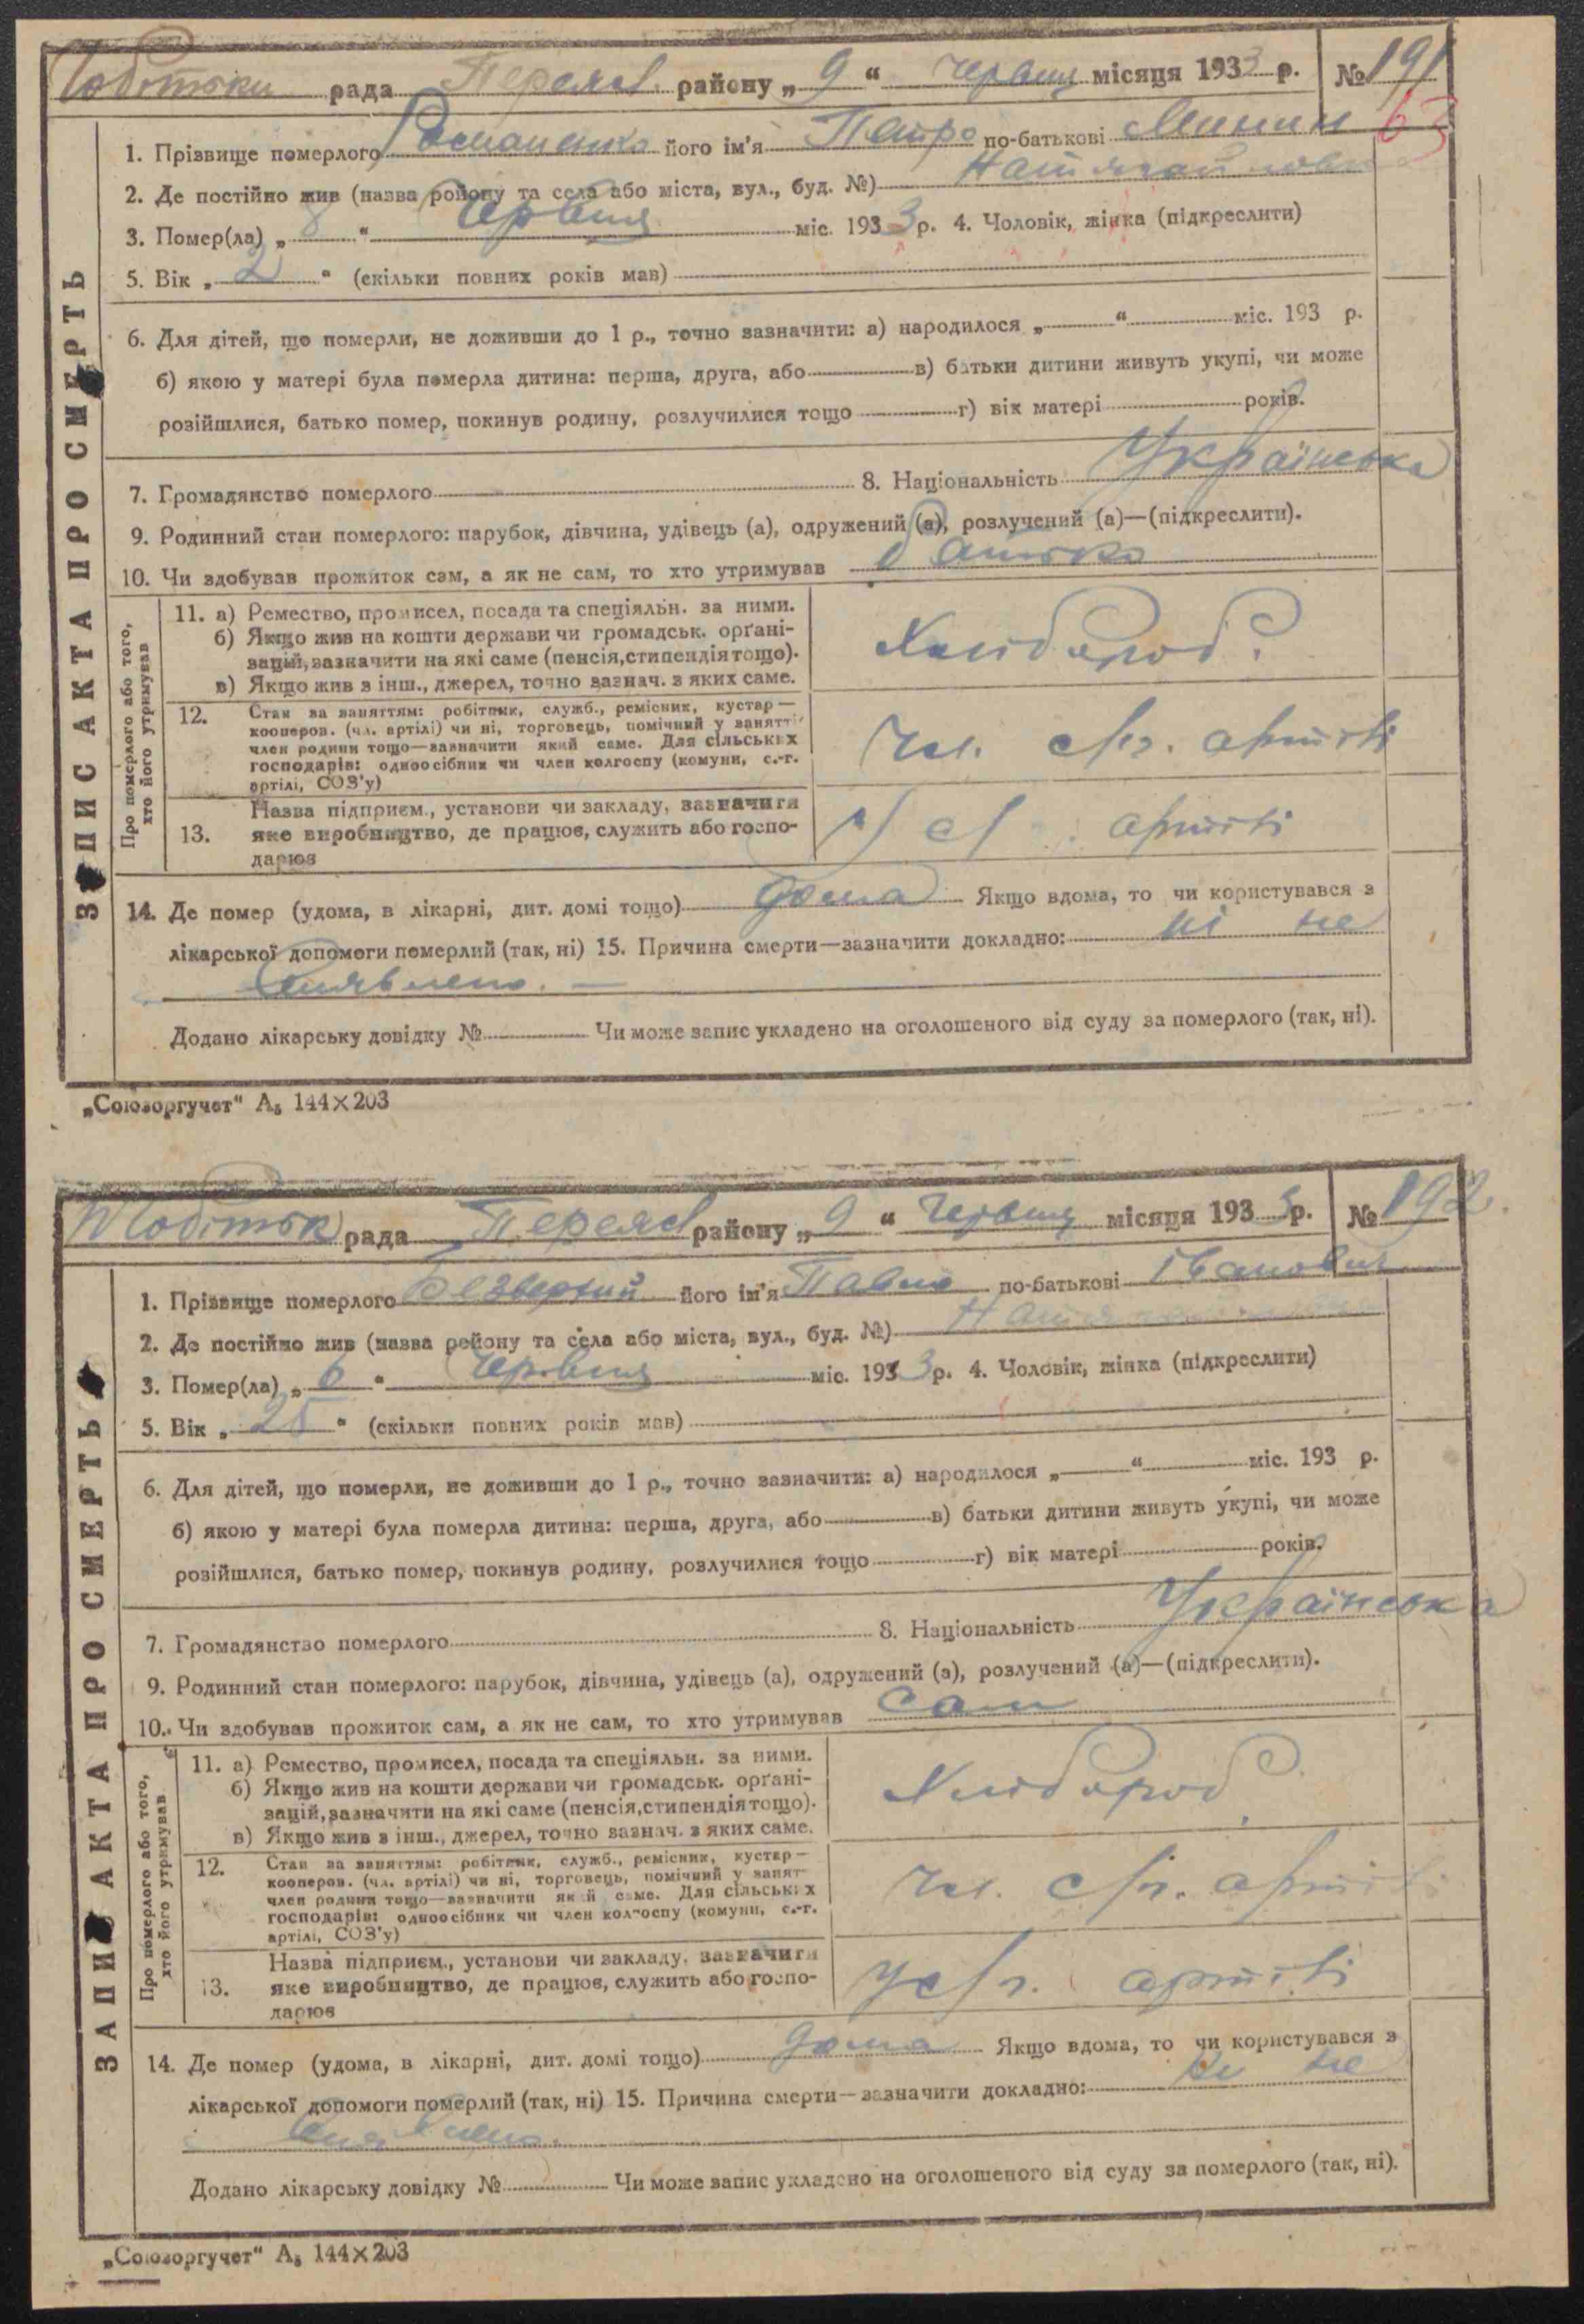 рада Переясл. району „ 9 “ червня місяця 1933 р. № 191
63
1. Прізвище померлого Романенко його ім'я Петро по-батькові
2. Де постійно жив (назва району та села або міста, вул., буд. №)
3. Помер(ла) „ 8 “ Червня міс. 1933 р. 4. Чоловік, жінка (підкреслити)
5. Вік „ 2 “ (скільки повних років мав)
6. Для дітей, що померли, не доживши до 1 р., точно зазначити: а) народилося „ “ міс. 193 р.
б) якою у матері була померла дитина: перша, друга, або в) батьки дитини живуть укупі, чи може
розійшлися, батько помер, покинув родину, розлучилися тощо г) вік матері років.
7. Громадянство померлого 8. Національність Українська
9. Родинний стан померлого: парубок, дівчина, удівець (а), одружений (а), розлучений (а)—(підкреслити).
10. Чи здобував прожиток сам, а як не сам, то хто утримував батько
ЗАПИС АКТА ПРО СМЕРТЬ
Про померлого або того,
хто його утримував
11. а) Ремество, промисел, посада та спеціяльн. за ними.
б) Якщо жив на кошти держави чи громадськ. орґані-
зацій, зазначити на які саме (пенсія, стипендія тощо).
в) Якщо жив з інш., джерел, точно зазнач. з яких саме.
Хлібороб.
12. Стан за заняттям: робітник, служб., ремісник, кустар—
кооперов. (чл. артілі) чи ні, торговець, помічний у занятті
член родини тощо—зазначити який саме. Для сільських
господарів: одноосібник чи член колгоспу (комуни, с.-г.
артілі, СОЗ'у)
Чл. с/г. артілі
13. Назва підприєм., установи чи закладу, зазначити
яке виробництво, де працює, служить або госпо-
дарює
У с/г. артілі
14. Де помер (удома, в лікарні, дит. домі тощо) дома Якщо вдома, то чи користувався з
лікарської допомоги померлий (так, ні) 15. Причина смерти—зазначити докладно: ні не
виявлено. —
Додано лікарську довідку № Чи може запис укладено на оголошеного від суду за померлого (так, ні).
„Союзоргучет“ А₅ 144×203
рада Переясл району „ 9 “ Червня місяця 1933 р. № 192.
1. Прізвище померлого Безверхий його ім'я Павло по-батькові Іванович
2. Де постійно жив (назва району та села або міста, вул., буд. №)
3. Помер(ла) „ 6 “ Червня міс. 1933 р. 4. Чоловік, жінка (підкреслити)
5. Вік „ 25 “ (скільки повних років мав)
6. Для дітей, що померли, не доживши до 1 р., точно зазначити: а) народилося „ “ міс. 193 р.
б) якою у матері була померла дитина: перша, друга, або в) батьки дитини живуть укупі, чи може
розійшлися, батько помер, покинув родину, розлучилися тощо г) вік матері років.
7. Громадянство померлого 8. Національність Українська
9. Родинний стан померлого: парубок, дівчина, удівець (а), одружений (а), розлучений (а)—(підкреслити).
10. Чи здобував прожиток сам, а як не сам, то хто утримував сам
ЗАПИС АКТА ПРО СМЕРТЬ
Про померлого або того,
хто його утримував
11. а) Ремество, промисел, посада та спеціяльн. за ними.
б) Якщо жив на кошти держави чи громадськ. орґані-
зацій, зазначити на які саме (пенсія, стипендія тощо).
в) Якщо жив з інш., джерел, точно зазнач. з яких саме.
Хлібороб.
12. Стан за заняттям: робітник, служб., ремісник, кустар—
кооперов. (чл. артілі) чи ні, торговець, помічний у занят-
член родини тощо—зазначити який саме. Для сільських
господарів: одноосібник чи член колгоспу (комуни, с.-г.
артілі, СОЗ'у)
Чл. с/г. артілі
13. Назва підприєм., установи чи закладу, зазначити
яке виробництво, де працює, служить або госпо-
дарює
У с/г. артілі
14. Де помер (удома, в лікарні, дит. домі тощо) дома Якщо вдома, то чи користувався з
лікарської допомоги померлий (так, ні) 15. Причина смерти—зазначити докладно: ні не
виявлено.
Додано лікарську довідку № Чи може запис укладено на оголошеного від суду за померлого (так, ні).
„Союзоргучет“ А₅ 144×203